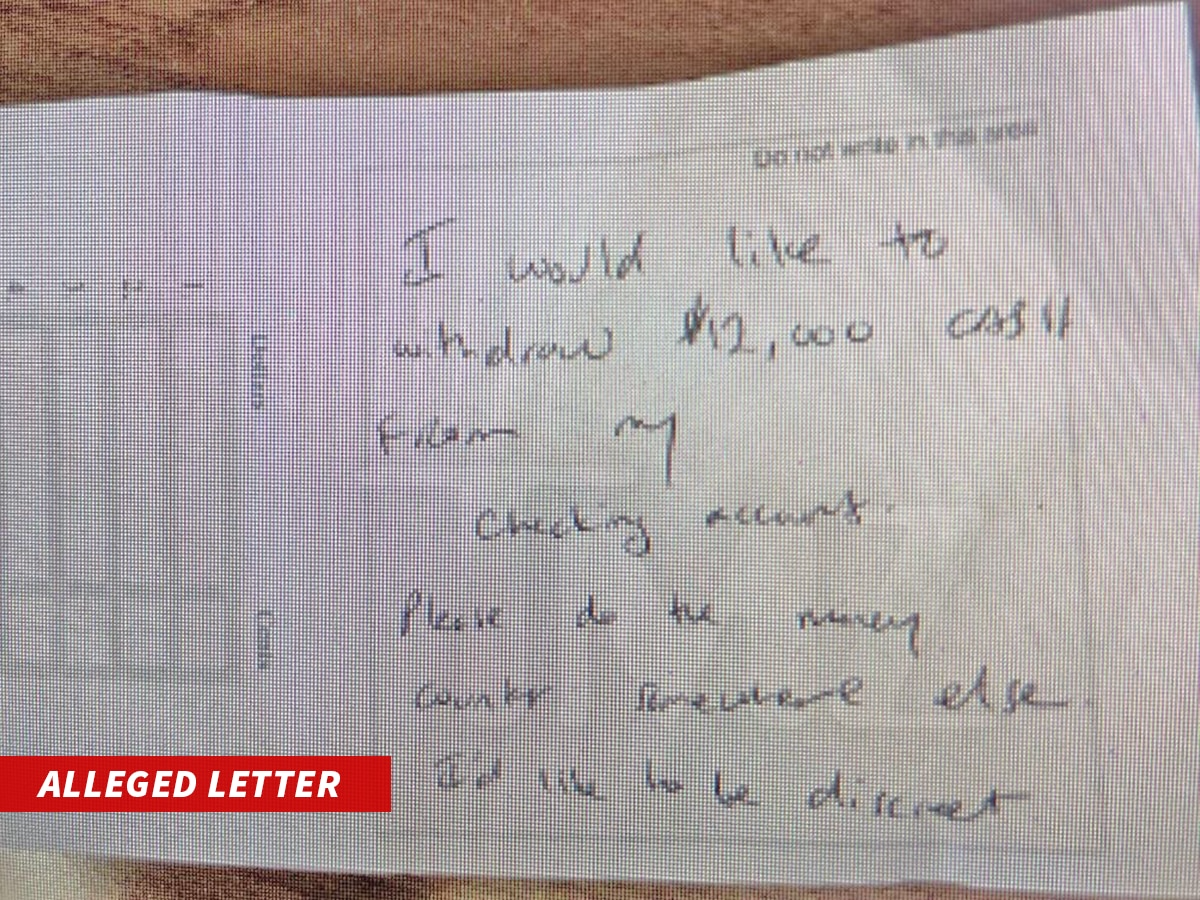 Do not write in this area
I would like to
withdraw $12,000 CASH
From my
Checking account.
Please do the money
counter somewhere else.
I'd like to be discreet
ALLEGED LETTER